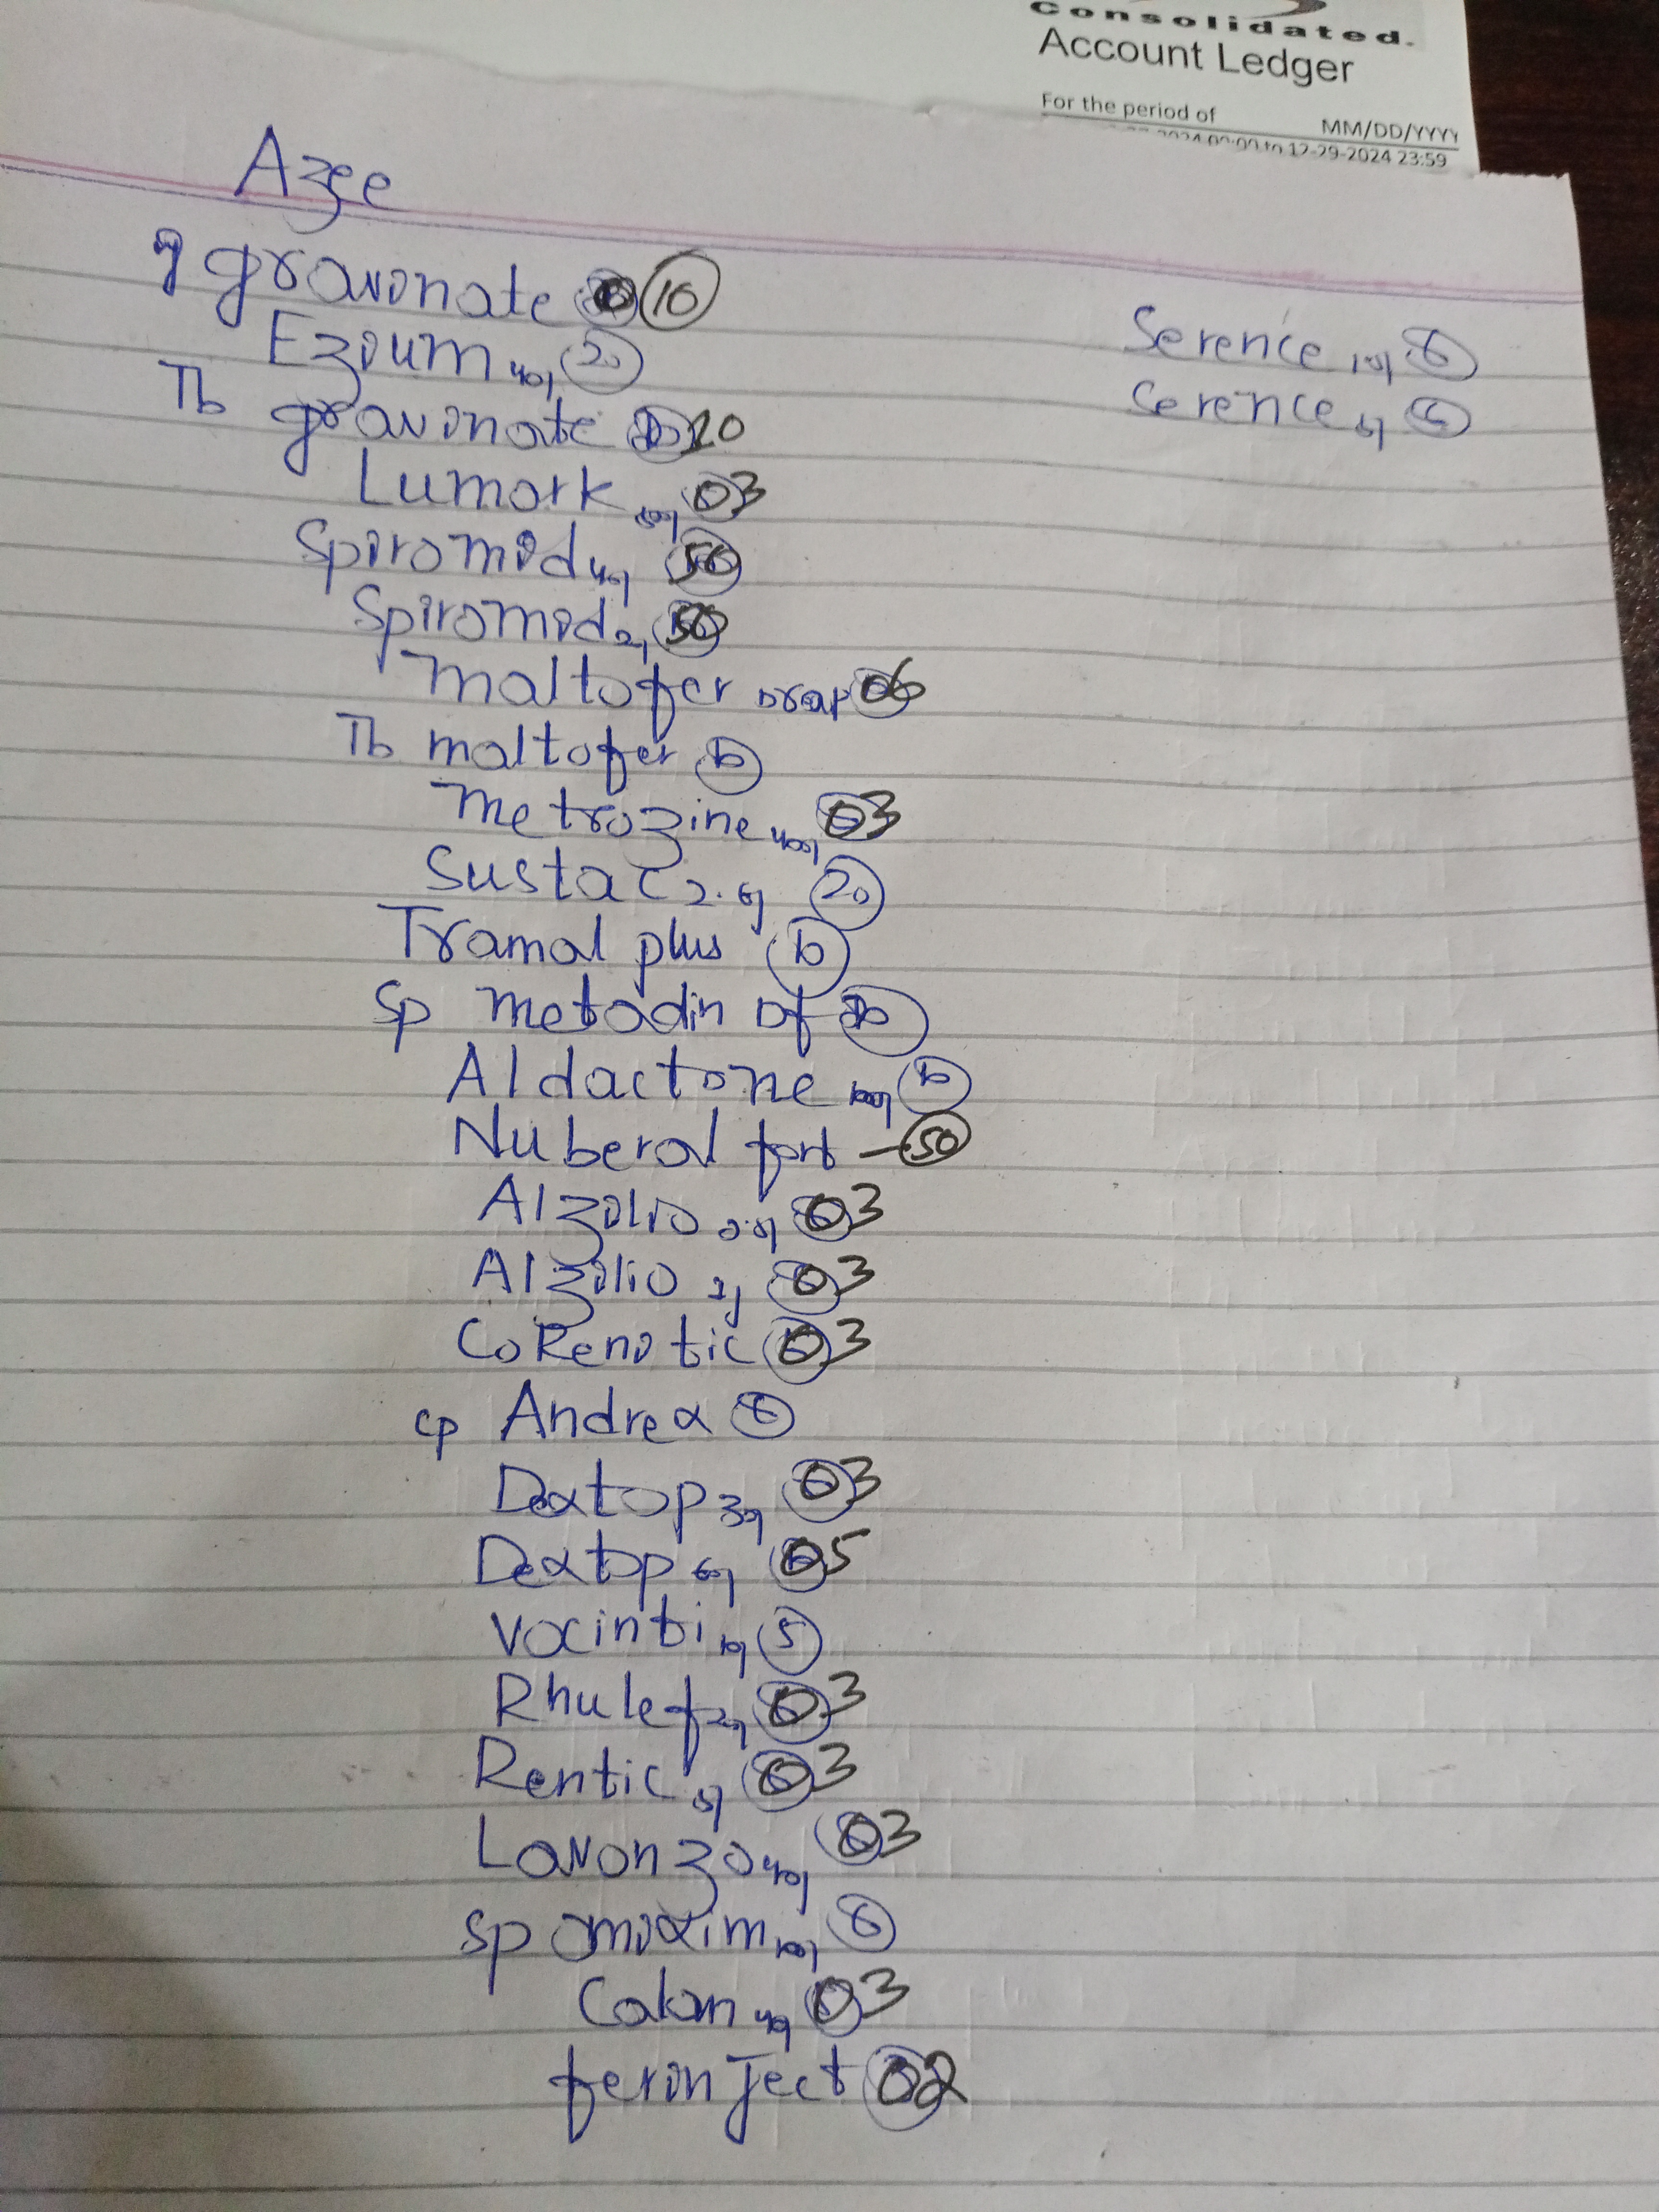 Consolidated.
Account Ledger
For the period of MM/DD/YYYY
to 12-29-2024 23:59
Azee
gravinate 10
Ezium 40 20
Tb gravinate 20
Lumark 03
Spiromid 40 50
Spiromid 20 50
maltofer Drop 06
Tb maltofer 10
metrozine 400 03
Sustac 2.6 20
Tramal plus 10
Sp metodin Df
Aldactone 100 10
Nuberol fort - 50
Alzolio 0.5 03
Alzolio 1 03
CoRenitic 03
cp Andrex 6
Dextop 30 03
Dextop 60 05
Vocinti 10 5
Rhulef 20 03
Rentic 5 03
Lavonzo 40 03
Sp omixim 100 6
Calan 40 03
ferinject 02
Serence 10 6
Serence 5 6